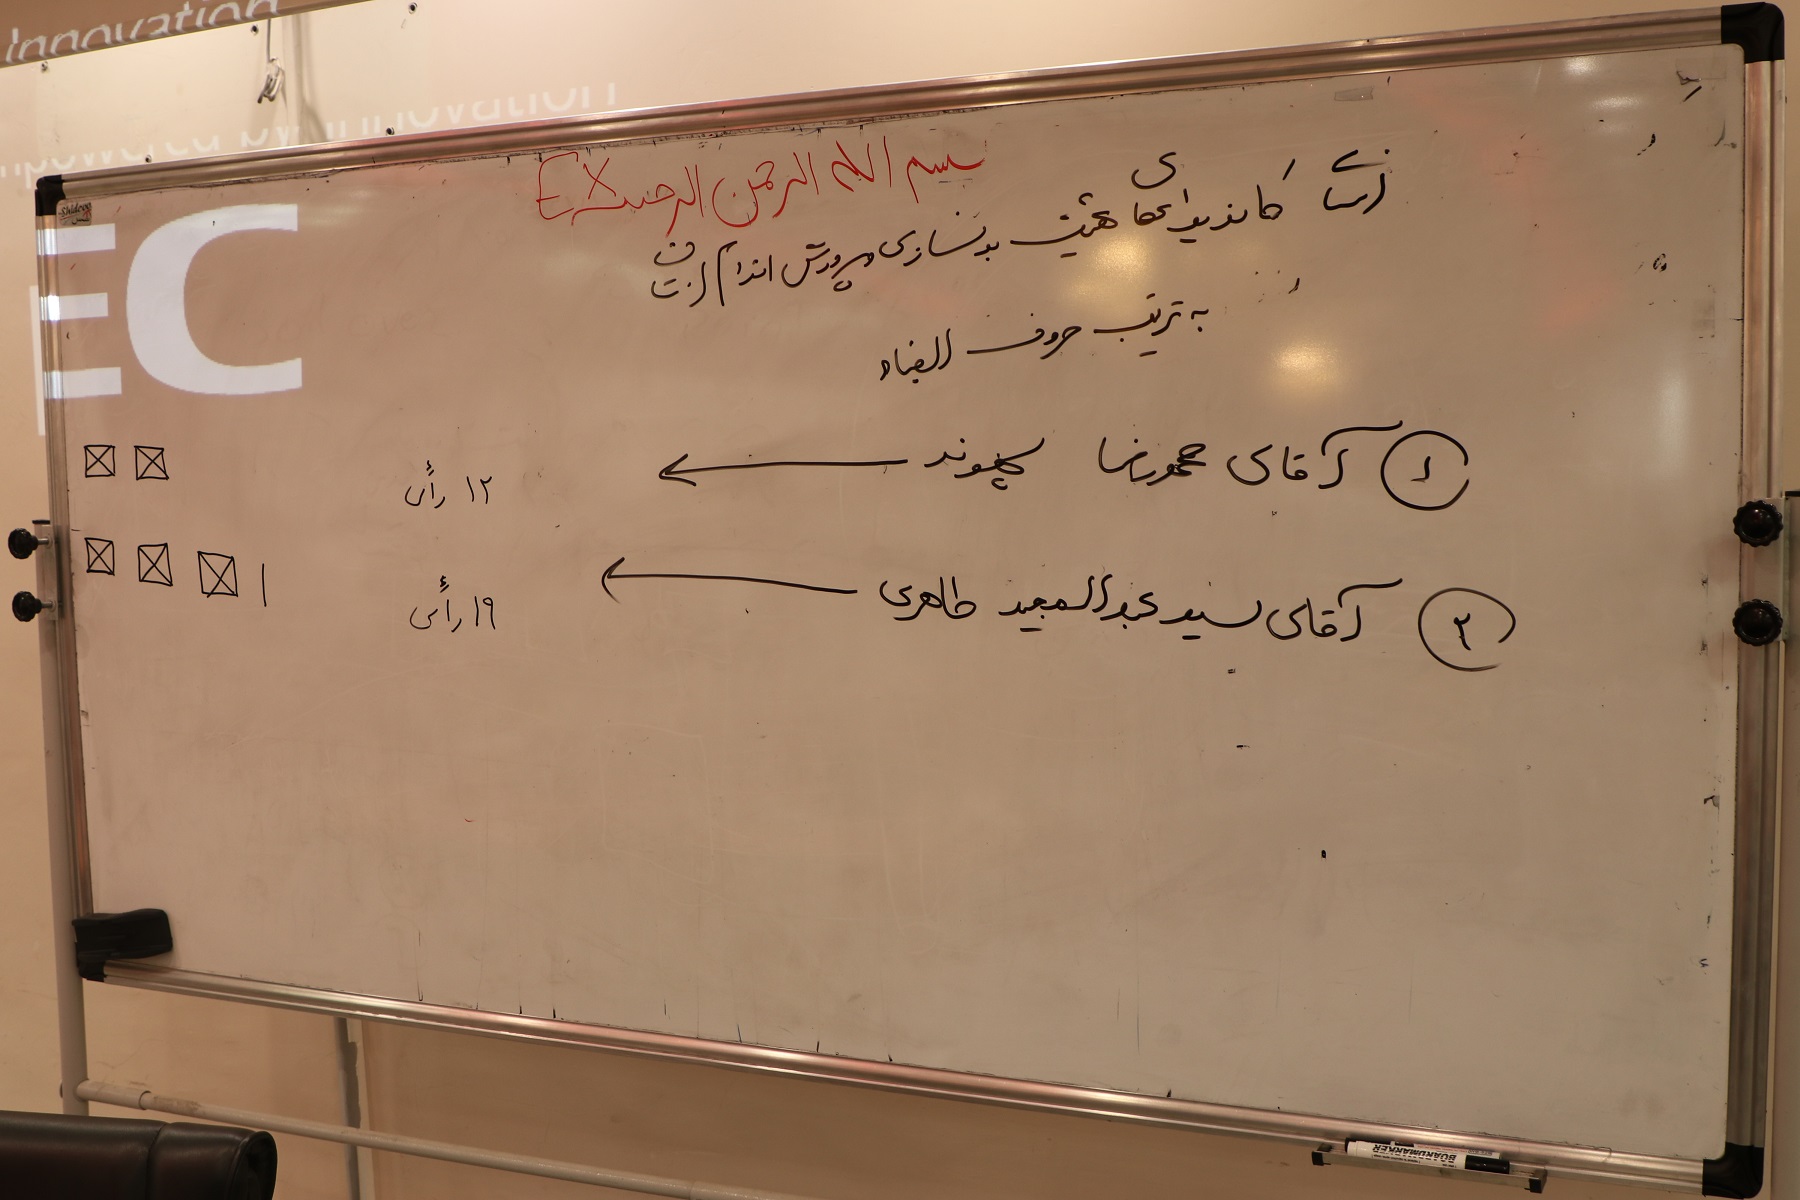 Innovation
mpowered by innovation
EC
E
Shidrou
بسم الله الرحمن الرحیم
اسامی کاندیداهای هیئت بدنسازی و پرورش اندام استان
به ترتیب حروف الفباء
۱ آقای محمودرضا کهوند ۱۲ رأی
۲ آقای سید عبدالمجید طاهری ۱۹ رأی
BOARDMARKER